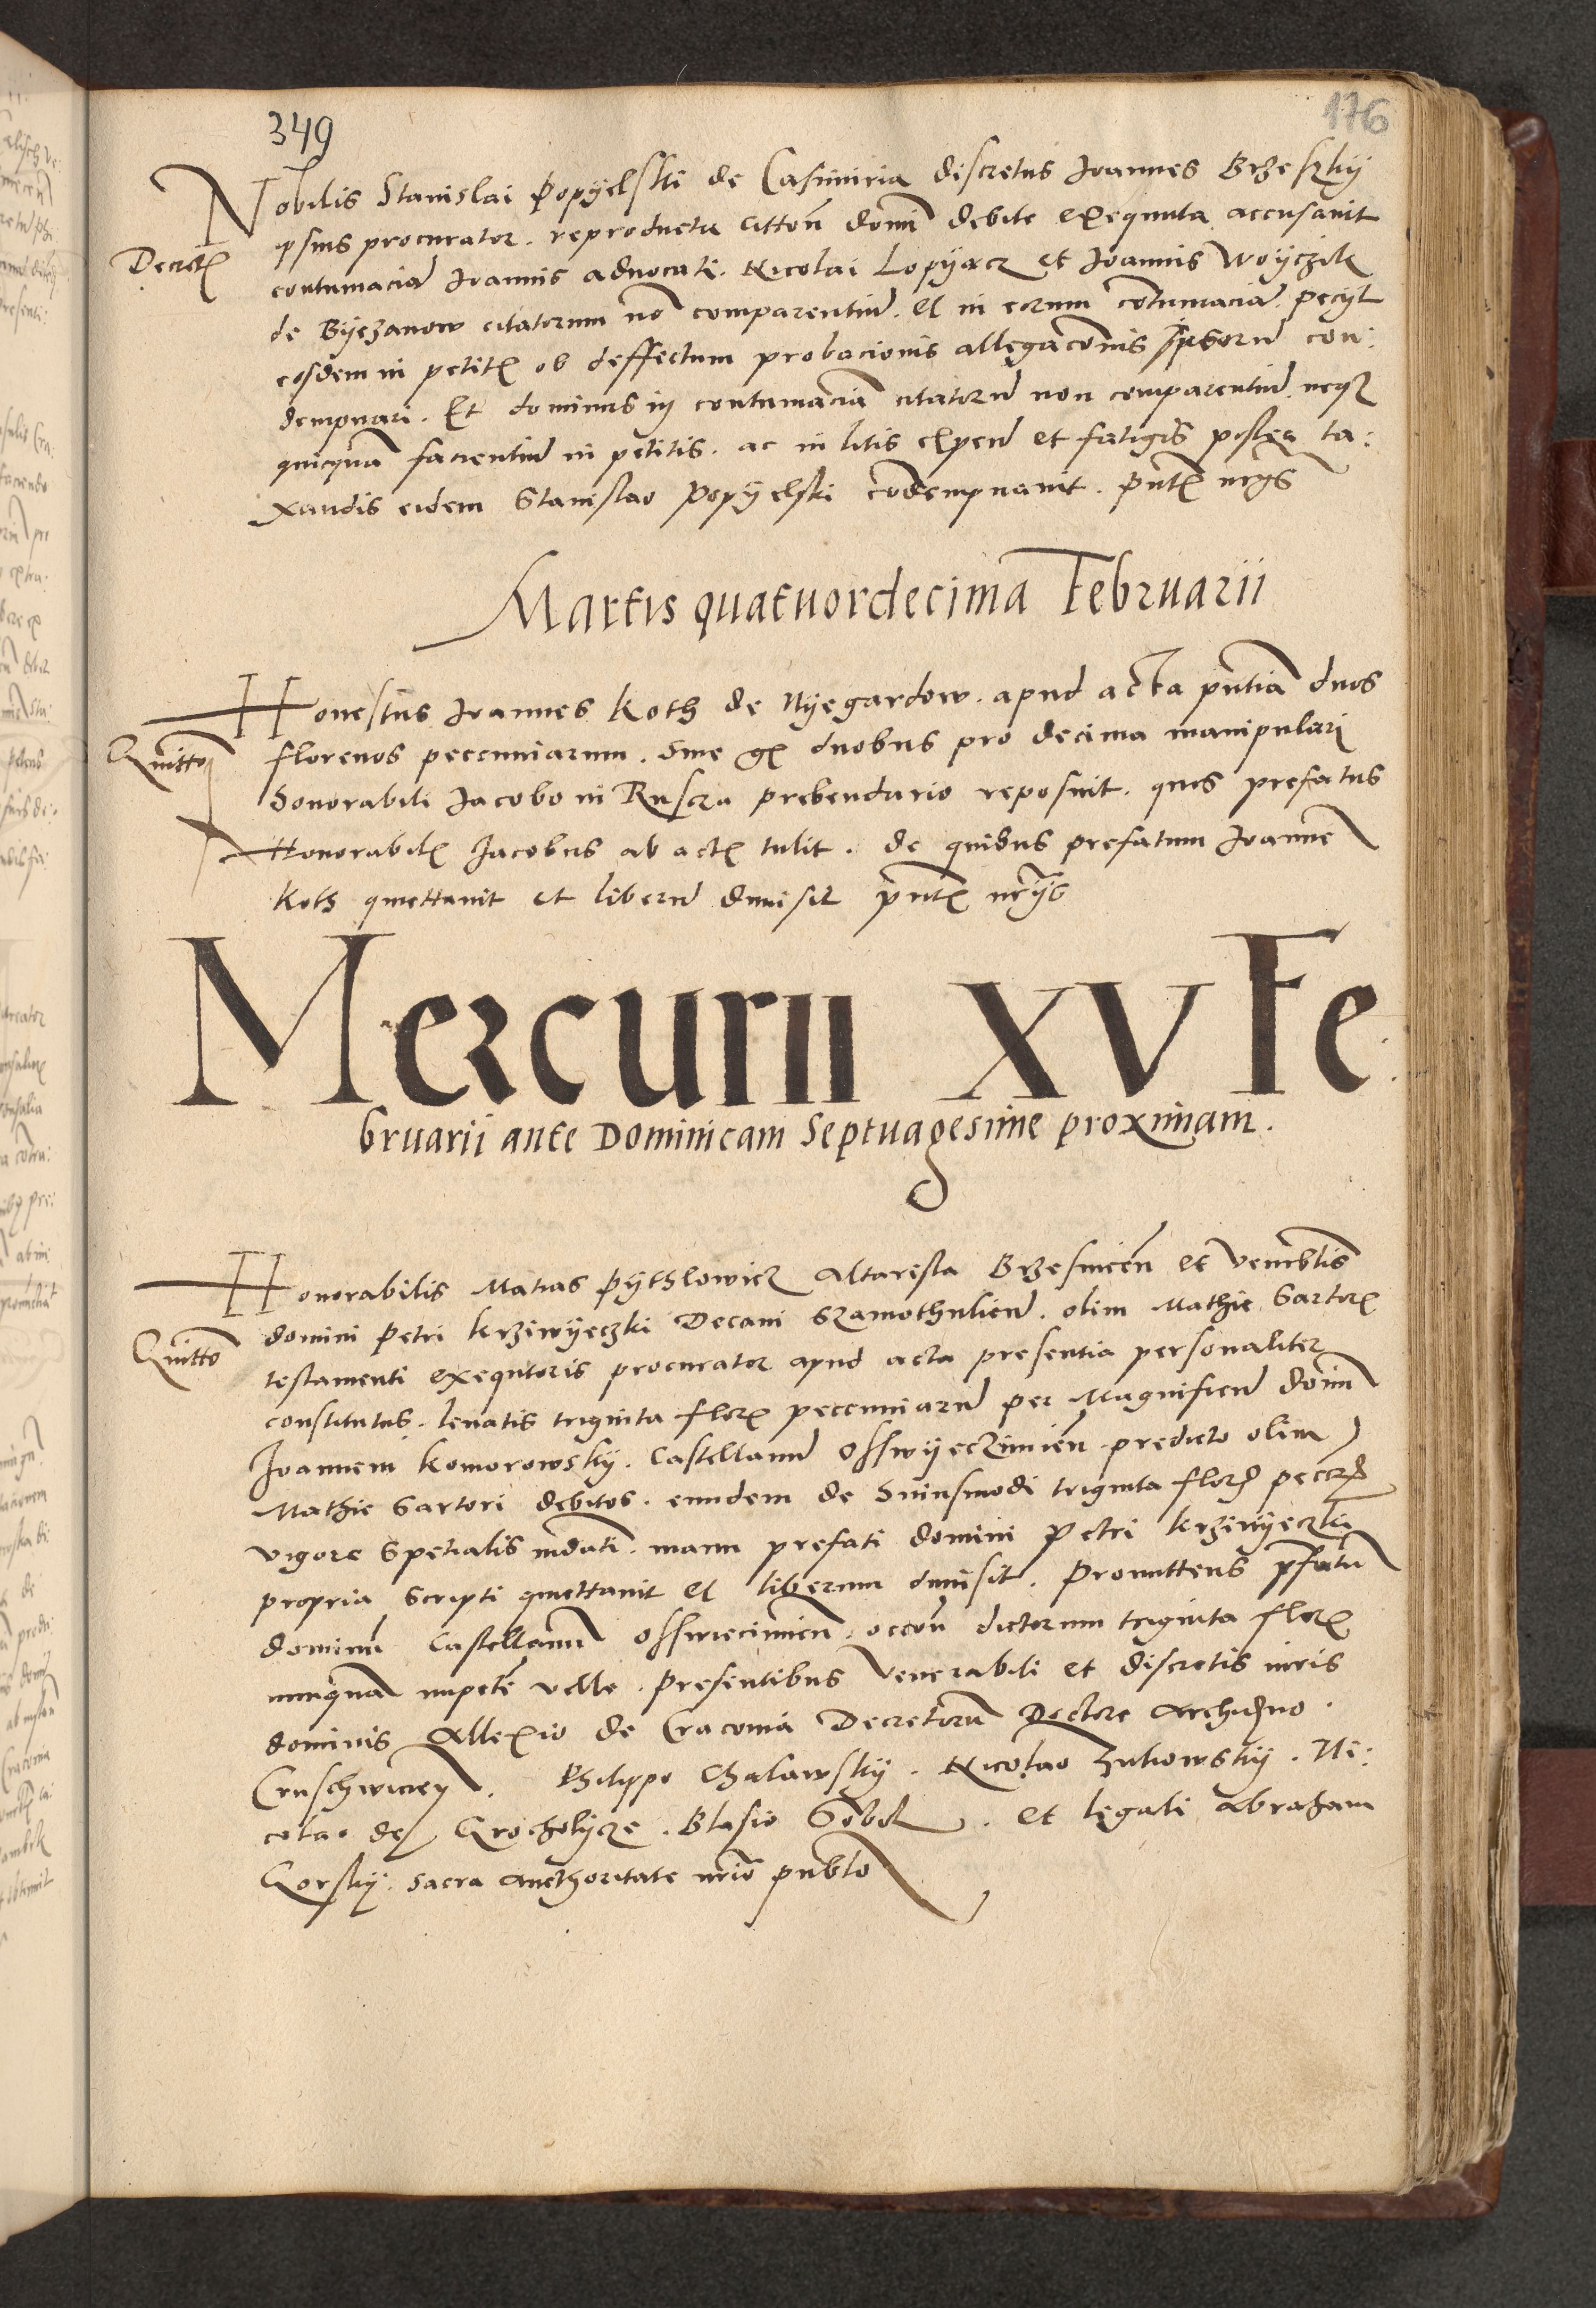 349
176
Nobilis Stanislai Popyelski de Casimiria discretus Joannes Brzeskij
Decret
ipsius procurator. reproducta citton domi debite exequuta accusavit
contumaciā Joannis advocati. Nicolai Lopyacz et Joannis Woyczik
de Byezanow citatorum nō comparentiū. Et in eorum cōtumaciā peciit
eosdem in petit ob deffectum probacionis allegacōnis ipsorū con:
dempnari. Et dominus in contumaciā citatorū non comparentiū neqz
quicquā facientiū in petitis. ac in litis expen et fatigis postea ta:
xandis eidem Stanislao Popyelski cōdempnavit. pñt
Martis quatuordecima Februarii
Honestus Joannes Koth de Nyegardow. apud acta pñtia duos
Quitto
florenos peccuniarum. sine gr duobus pro decima manipulari
honorabili Jacobo inRuscza prebendario reposuit. quos prefatus
Honorabil Jacobus ab act tulit. de quibus prefatum Joannē
Koth quettavit et liberū dimisit pñt
Mercurii XV Fe
bruarii ante Dominicam Septuagesime proximam.
Honorabilis Matias Pythlowicz Altarista Brzesnicen et Venerblis
domini Petri Krziwyeczki Decani Szamothulien. olim Mathie Sartor
Quitto
testamenti exequtoris procurator apud acta presentia personaliter
constitutus. levatis triginta flor peccuniarū per Magnificū domi
Joannem Komorowsky. Castellanū Osswyeczimien predicto olim
Mathie Sartori debitos. eundem de huiusmodi triginta flor pecc
vigore spetialis mdati. manu prefati domini Petri Krziwyeczki
propria scripti quettavit et liberum dimisit. Promittens pfatū
dominū Castellanū Osswiecimien. occon dictorum triginta flor
nunquā impetē velle. Presentibus Venerabili et discretis viris
dominis Allexio de Cracovia Decretorū Doctore Archidno
Cruschwicien. Philippo Chalawsky. Nicolao Zukowsky. Ni:
colao de Grocholycze. Blasio Gobol. et legali Abraham
Gorsky. sacra aucthoritate nrio publo